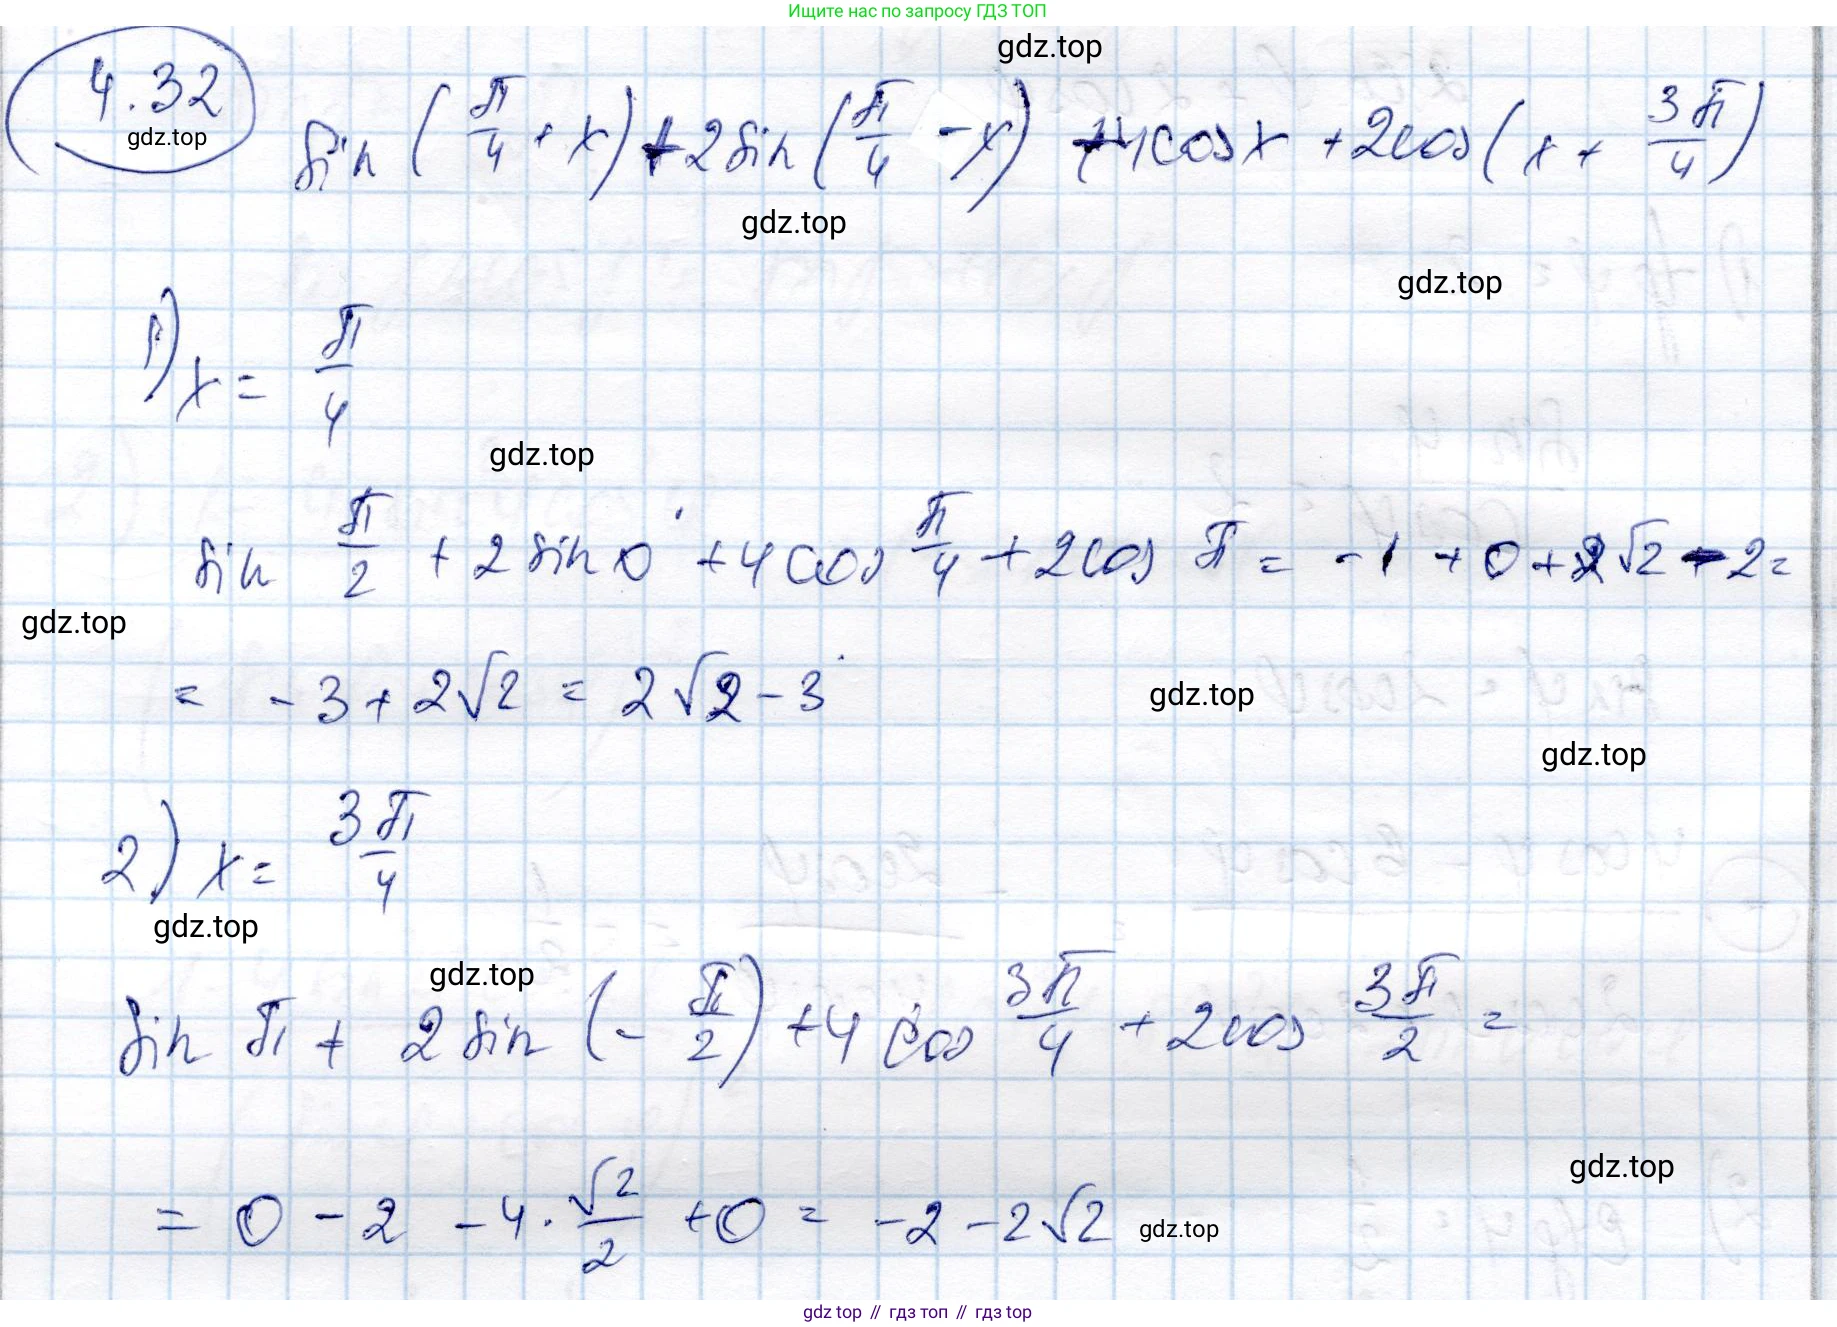 Ищите нас по запросу ГДЗ ТОП
gdz.top
4.32
gdz.top
sin(π/4 + x) + 2sin(π/4 - x) + 4cosx + 2cos(x + 3π/4)
gdz.top
gdz.top
1) x = π/4
gdz.top
sin π/2 + 2 sin 0 + 4 cos π/4 + 2cos π = -1 + 0 + 2√2 - 2 =
gdz.top
= -3 + 2√2 = 2√2 - 3
gdz.top
gdz.top
2) x = 3π/4
gdz.top
gdz.top
sin π + 2 sin (- π/2) + 4 cos 3π/4 + 2cos 3π/2 =
gdz.top
= 0 - 2 - 4 · √2/2 + 0 = -2 - 2√2
gdz.top
gdz top // гдз топ // гдз top